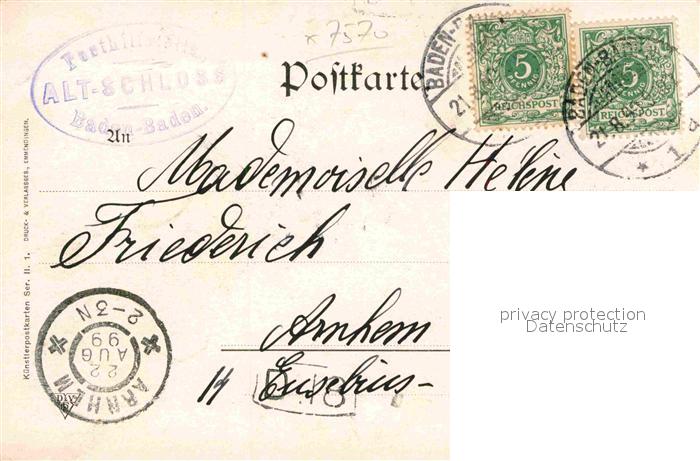 x 7570
Posthilfstelle
ALT-SCHLOSS
Baden-Baden.
Postkarte
5
PFENNIG
REICHSPOST
5
PFENNIG
REICHSPOST
BADEN-BADEN
21.
BADEN-BADEN
21.8.
An
Mademoiselle Helène
Friederich
Arnhem
Eusebius-
privacy protection
Datenschutz
ARNHEM
22
AUG
99
2-3N
Künstlerpostkarten Ser. II. 1. DRUCK- & VERLAGSGES. EMMENDINGEN.